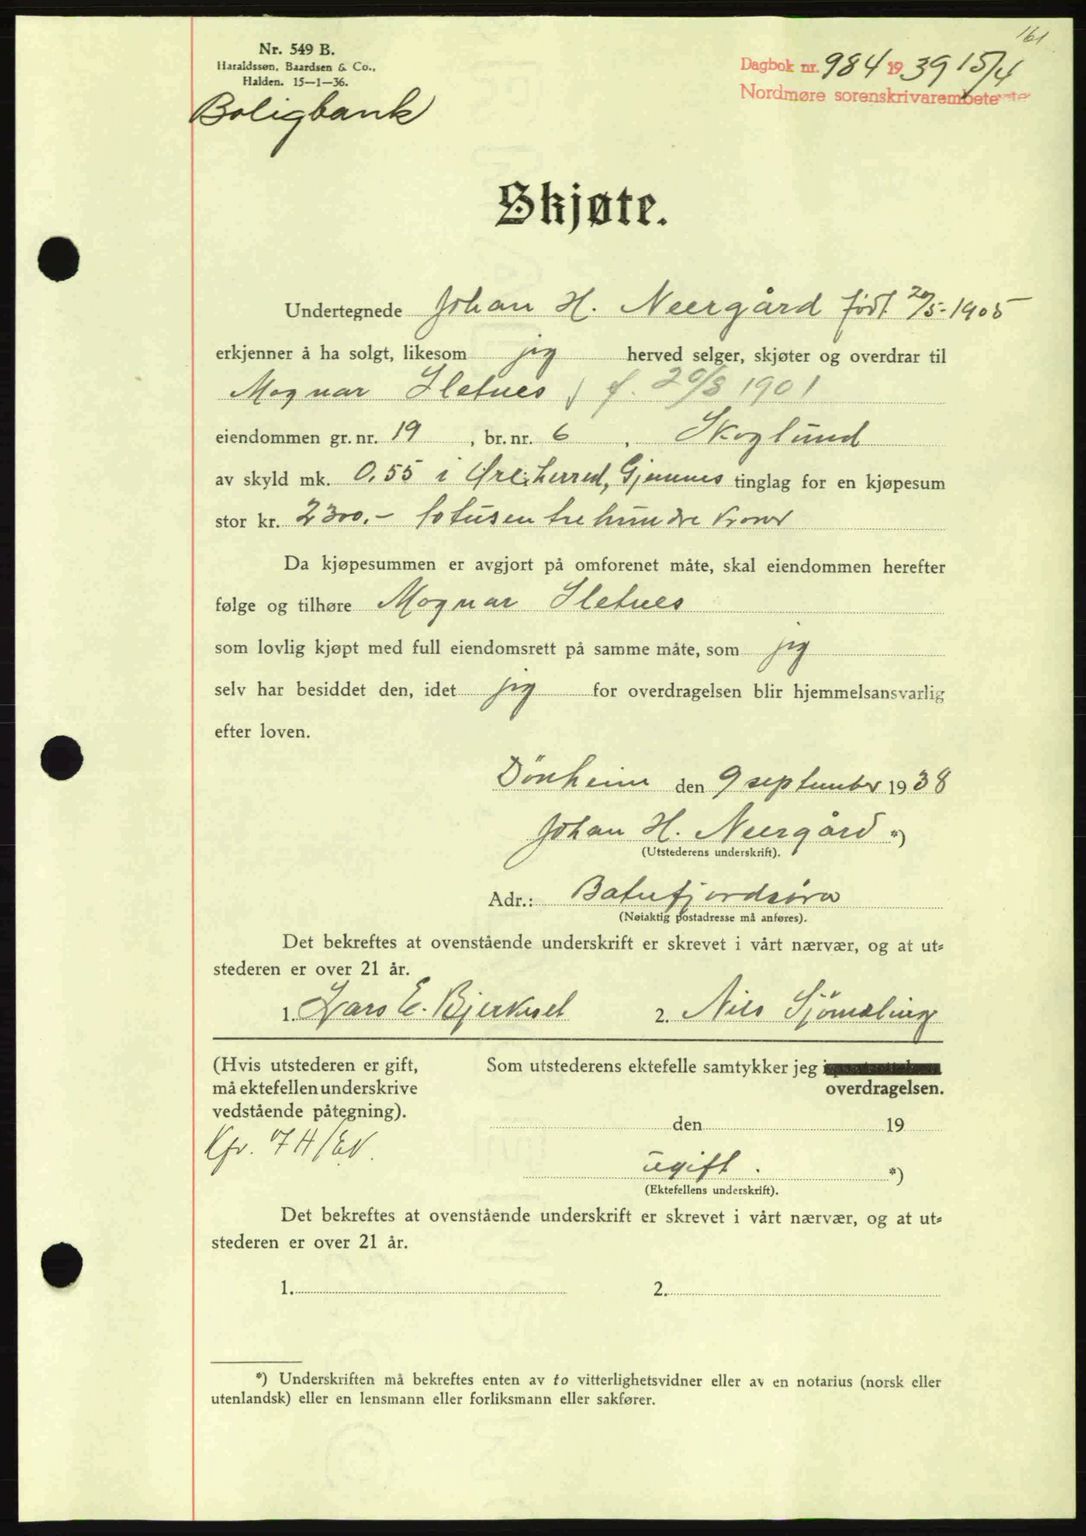 161
Nr. 549 B.
Haraldssøn, Baardsen & Co.,
Halden. 15—1—36.
Boligbank
Dagbok nr. 984 1939 15/4
Nordmøre sorenskrivarembete
Skjøte.
Undertegnede Johan H. Neergård født 20/5-1905
erkjenner å ha solgt, likesom jig herved selger, skjøter og overdrar til
Magnar Sletnes f. 20/8 1901
eiendommen gr. nr. 19, br. nr. 6, Skoglund
av skyld mk. 0,55 i Øre herred, Gjemnes tinglag for en kjøpesum
stor kr. 2300.- totusen trehundre kroner
Da kjøpesummen er avgjort på omforenet måte, skal eiendommen herefter
følge og tilhøre Magnar Sletnes
som lovlig kjøpt med full eiendomsrett på samme måte, som jig
selv har besiddet den, idet jig for overdragelsen blir hjemmelsansvarlig
efter loven.
Dönheim den 9 september 1938
Johan H. Neergård *)
(Utstederens underskrift).
Adr.: Batnfjordsøra
(Nøiaktig postadresse må anføres).
Det bekreftes at ovenstående underskrift er skrevet i vårt nærvær, og at ut=
stederen er over 21 år.
1. Lars E. Bjerkset 2. Nils
(Hvis utstederen er gift,
må ektefellen underskrive
vedstående påtegning).
Kfr. 7H/EN.
Som utstederens ektefelle samtykker jeg
overdragelsen.
den 19
ugift. *)
(Ektefellens underskrift).
Det bekreftes at ovenstående underskrift er skrevet i vårt nærvær, og at ut=
stederen er over 21 år.
1. 2.
*) Underskriften må bekreftes enten av to vitterlighetsvidner eller av en notarius (norsk eller
utenlandsk) eller en lensmann eller forliksmann eller sakfører.